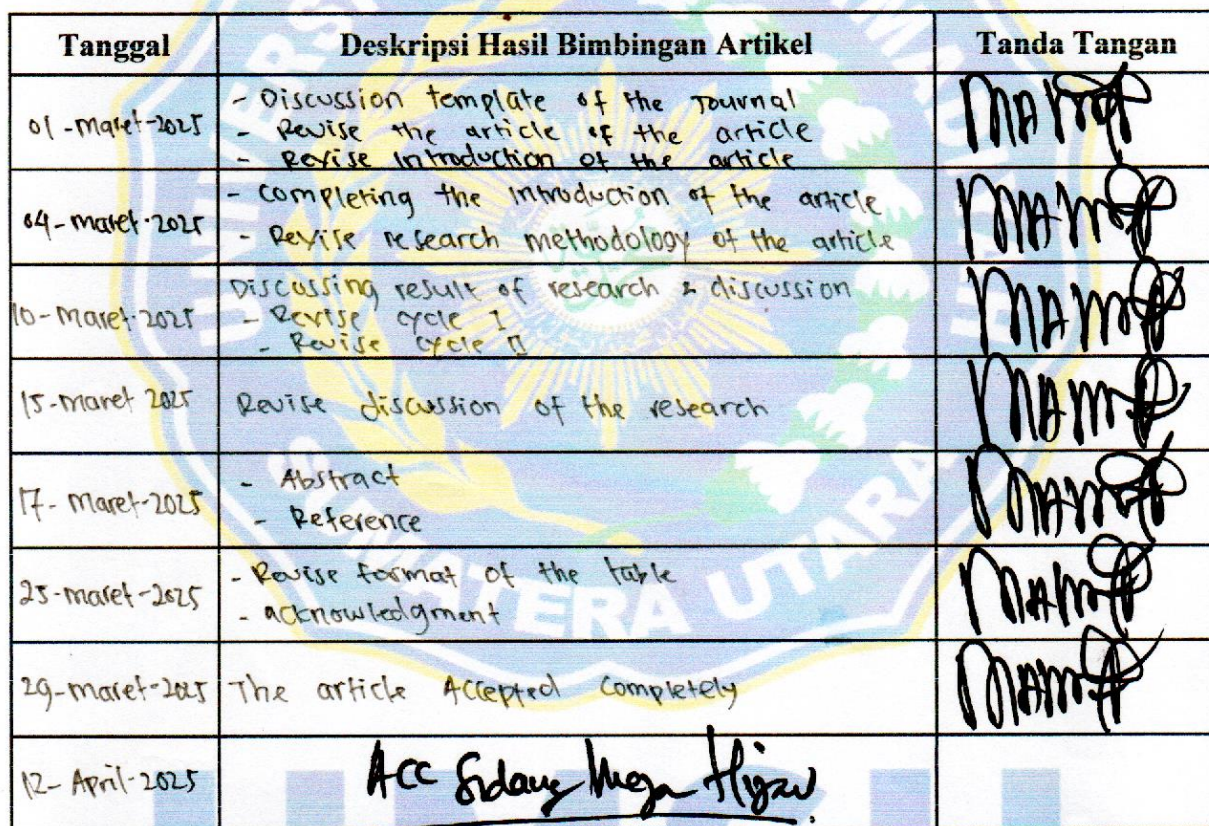 Tanggal Deskripsi Hasil Bimbingan Artikel Tanda Tangan
01-Maret-2025
- Discussion template of the Journal
- Revise the article of the article
- Revise Introduction of the article
04-Maret-2025
- Completing the Introduction of the article
- Revise research methodology of the article
10-Maret-2025
Discussing result of research & discussion
- Revise cycle I
- Revise cycle II
15-Maret 2025
Revise discussion of the research
17-Maret-2025
- Abstract
- Reference
25-maret-2025
- Revise format of the table
- acknowledgment
29-maret-2025
The article Accepted Completely
12-April-2025
ACC Sidang Meja Hijau
SUMATERA UTARA